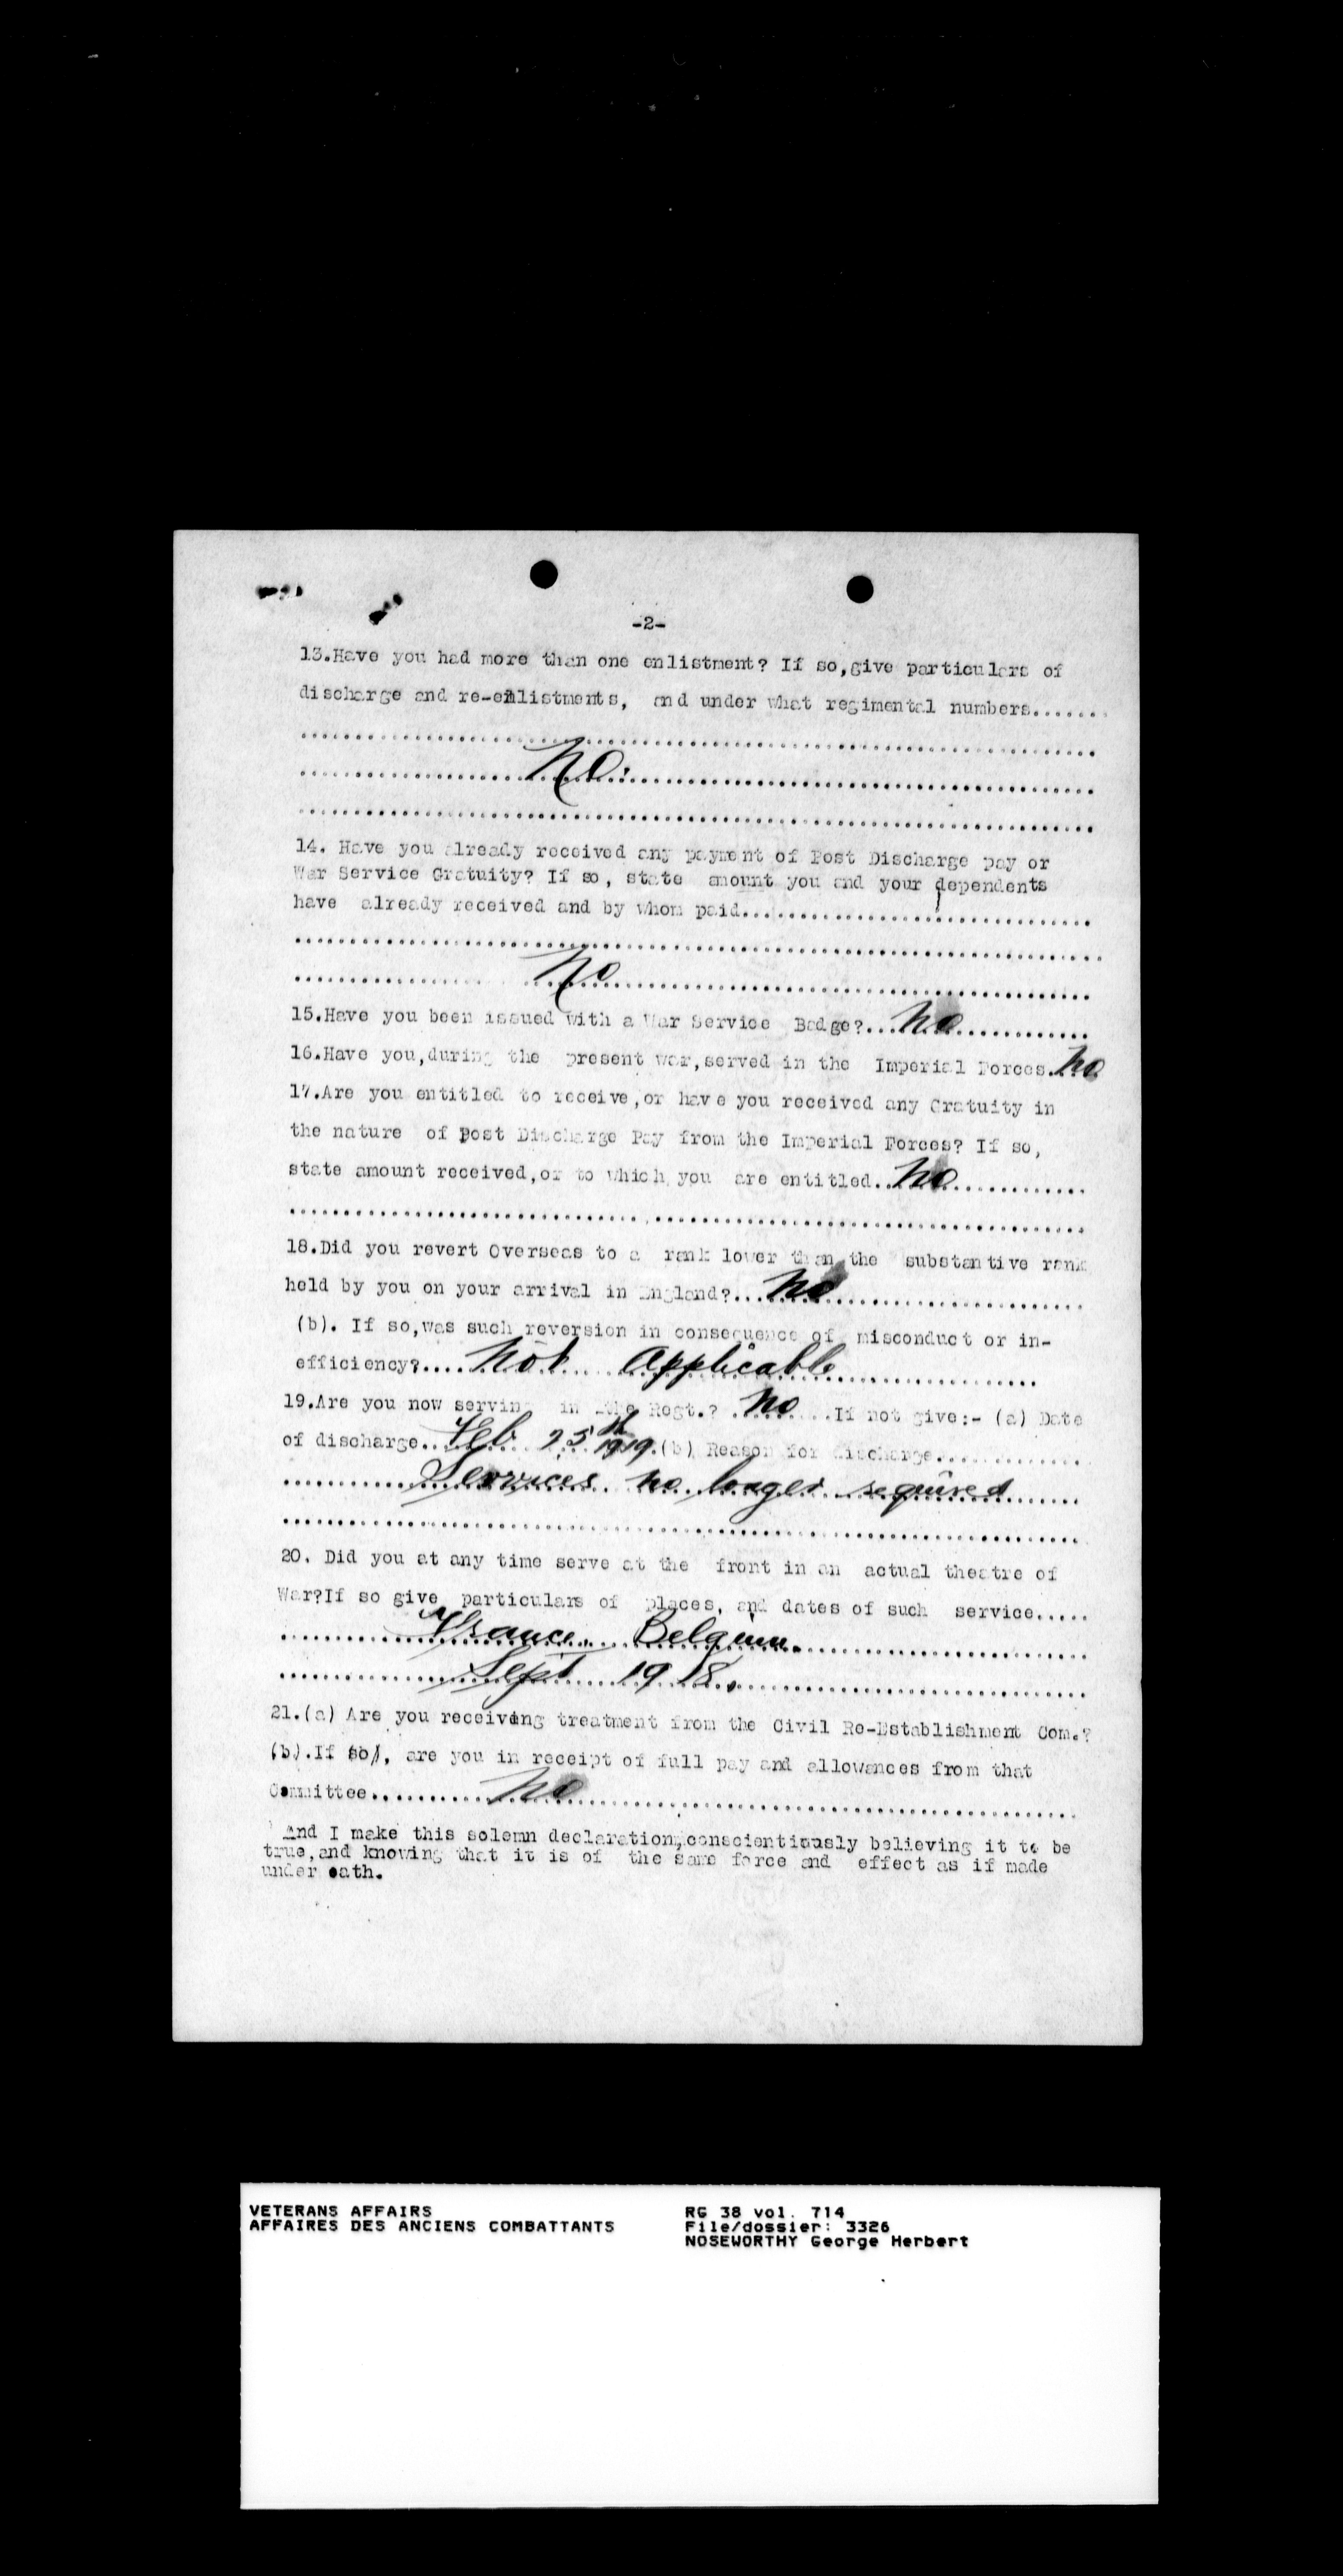 -2-
13.Have you had more than one enlistment? If so,give particulars of
discharge and re-enlistments, and under what regimental numbers.......
No.
14. Have you already received any payment of Post Discharge pay or
War Service Gratuity? If so, state amount you and your dependents
have already received and by whom paid...............................
No
15.Have you been issued with a War Service Badge?...No..............
16.Have you,during the present war,served in the Imperial Forces.No
17.Are you entitled to receive,or have you received any Gratuity in
the nature of Post Discharge Pay from the Imperial Forces? If so,
state amount received,or to which you are entitled..No..............
18.Did you revert Overseas to a rank lower than the substantive rank
held by you on your arrival in England?...No......................
(b). If so,was such reversion in consequence of misconduct or in-
efficiency?....Not Applicable..................
19.Are you now serving in the Regt.? No .....If not give:- (a) Date
of discharge..Feb 25th 1919.(b) Reason for discharge..............
Services no longer required
20. Did you at any time serve at the front in an actual theatre of
War?If so give particulars of places, and dates of such service.....
France, Belgium.
Sept 1918.
21.(a) Are you receiving treatment from the Civil Re-Establishment Com.?
(b).If so, are you in receipt of full pay and allowances from that
Committee..........No.............................................
And I make this solemn declaration,conscientiously believing it to be
true,and knowing that it is of the same force and effect as if made
under oath.
VETERANS AFFAIRS RG 38 vol. 714
AFFAIRES DES ANCIENS COMBATTANTS File/dossier: 3326
NOSEWORTHY George Herbert